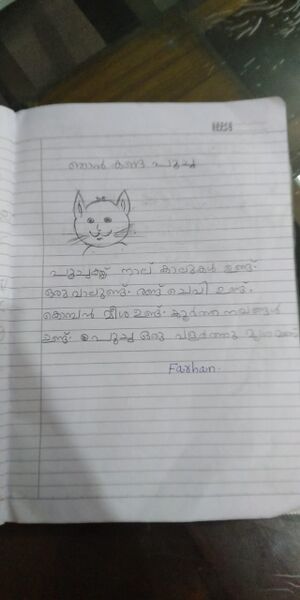 ഞാൻ കണ്ട പൂച്ച
പൂച്ചക്ക് നാല് കാലുകൾ ഉണ്ട്.
ഒരു വാലുണ്ട്. രണ്ട് ചെവി ഉണ്ട്.
കൊമ്പൻ മീശ ഉണ്ട്. കൂർത്ത നഖങ്ങൾ
ഉണ്ട്. പൂച്ച ഒരു വളർത്തു മൃഗ
Farhan.